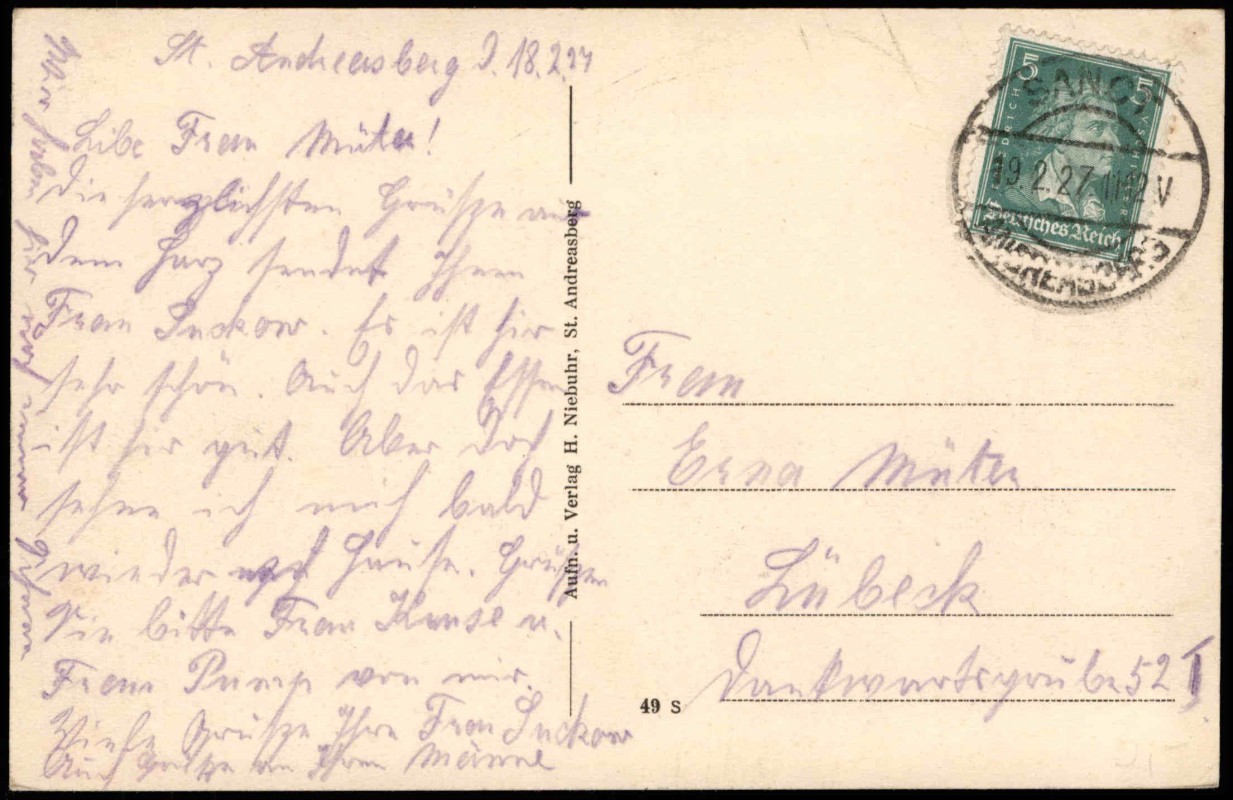 St. Andreasberg d. 18.2.27
Libe Frau Müter!
die herzlichsten Grüsze aus
dem Harz sendet Ihnen
Frau Suckow. Es ist hir
sehr schön. Auch das Essen
ist hir gut. Aber doch
sehne ich mich bald
wieder nach Hause. Grüszen
Sie bitte Frau Kruse u.
Frau Pump von mir.
Viele Grüsze Ihre Frau Suckow
Auch Grüsze an Ihren Manne
Wir haben hir noch immer
Aufn. u. Verlag H. Niebuhr, St. Andreasberg
5 5
Deutsches Reich
SANCT
19.2.27. 11-12 V
Frau
Erna Müter
Lübeck
Dankwartsgrube 52 I
49 S